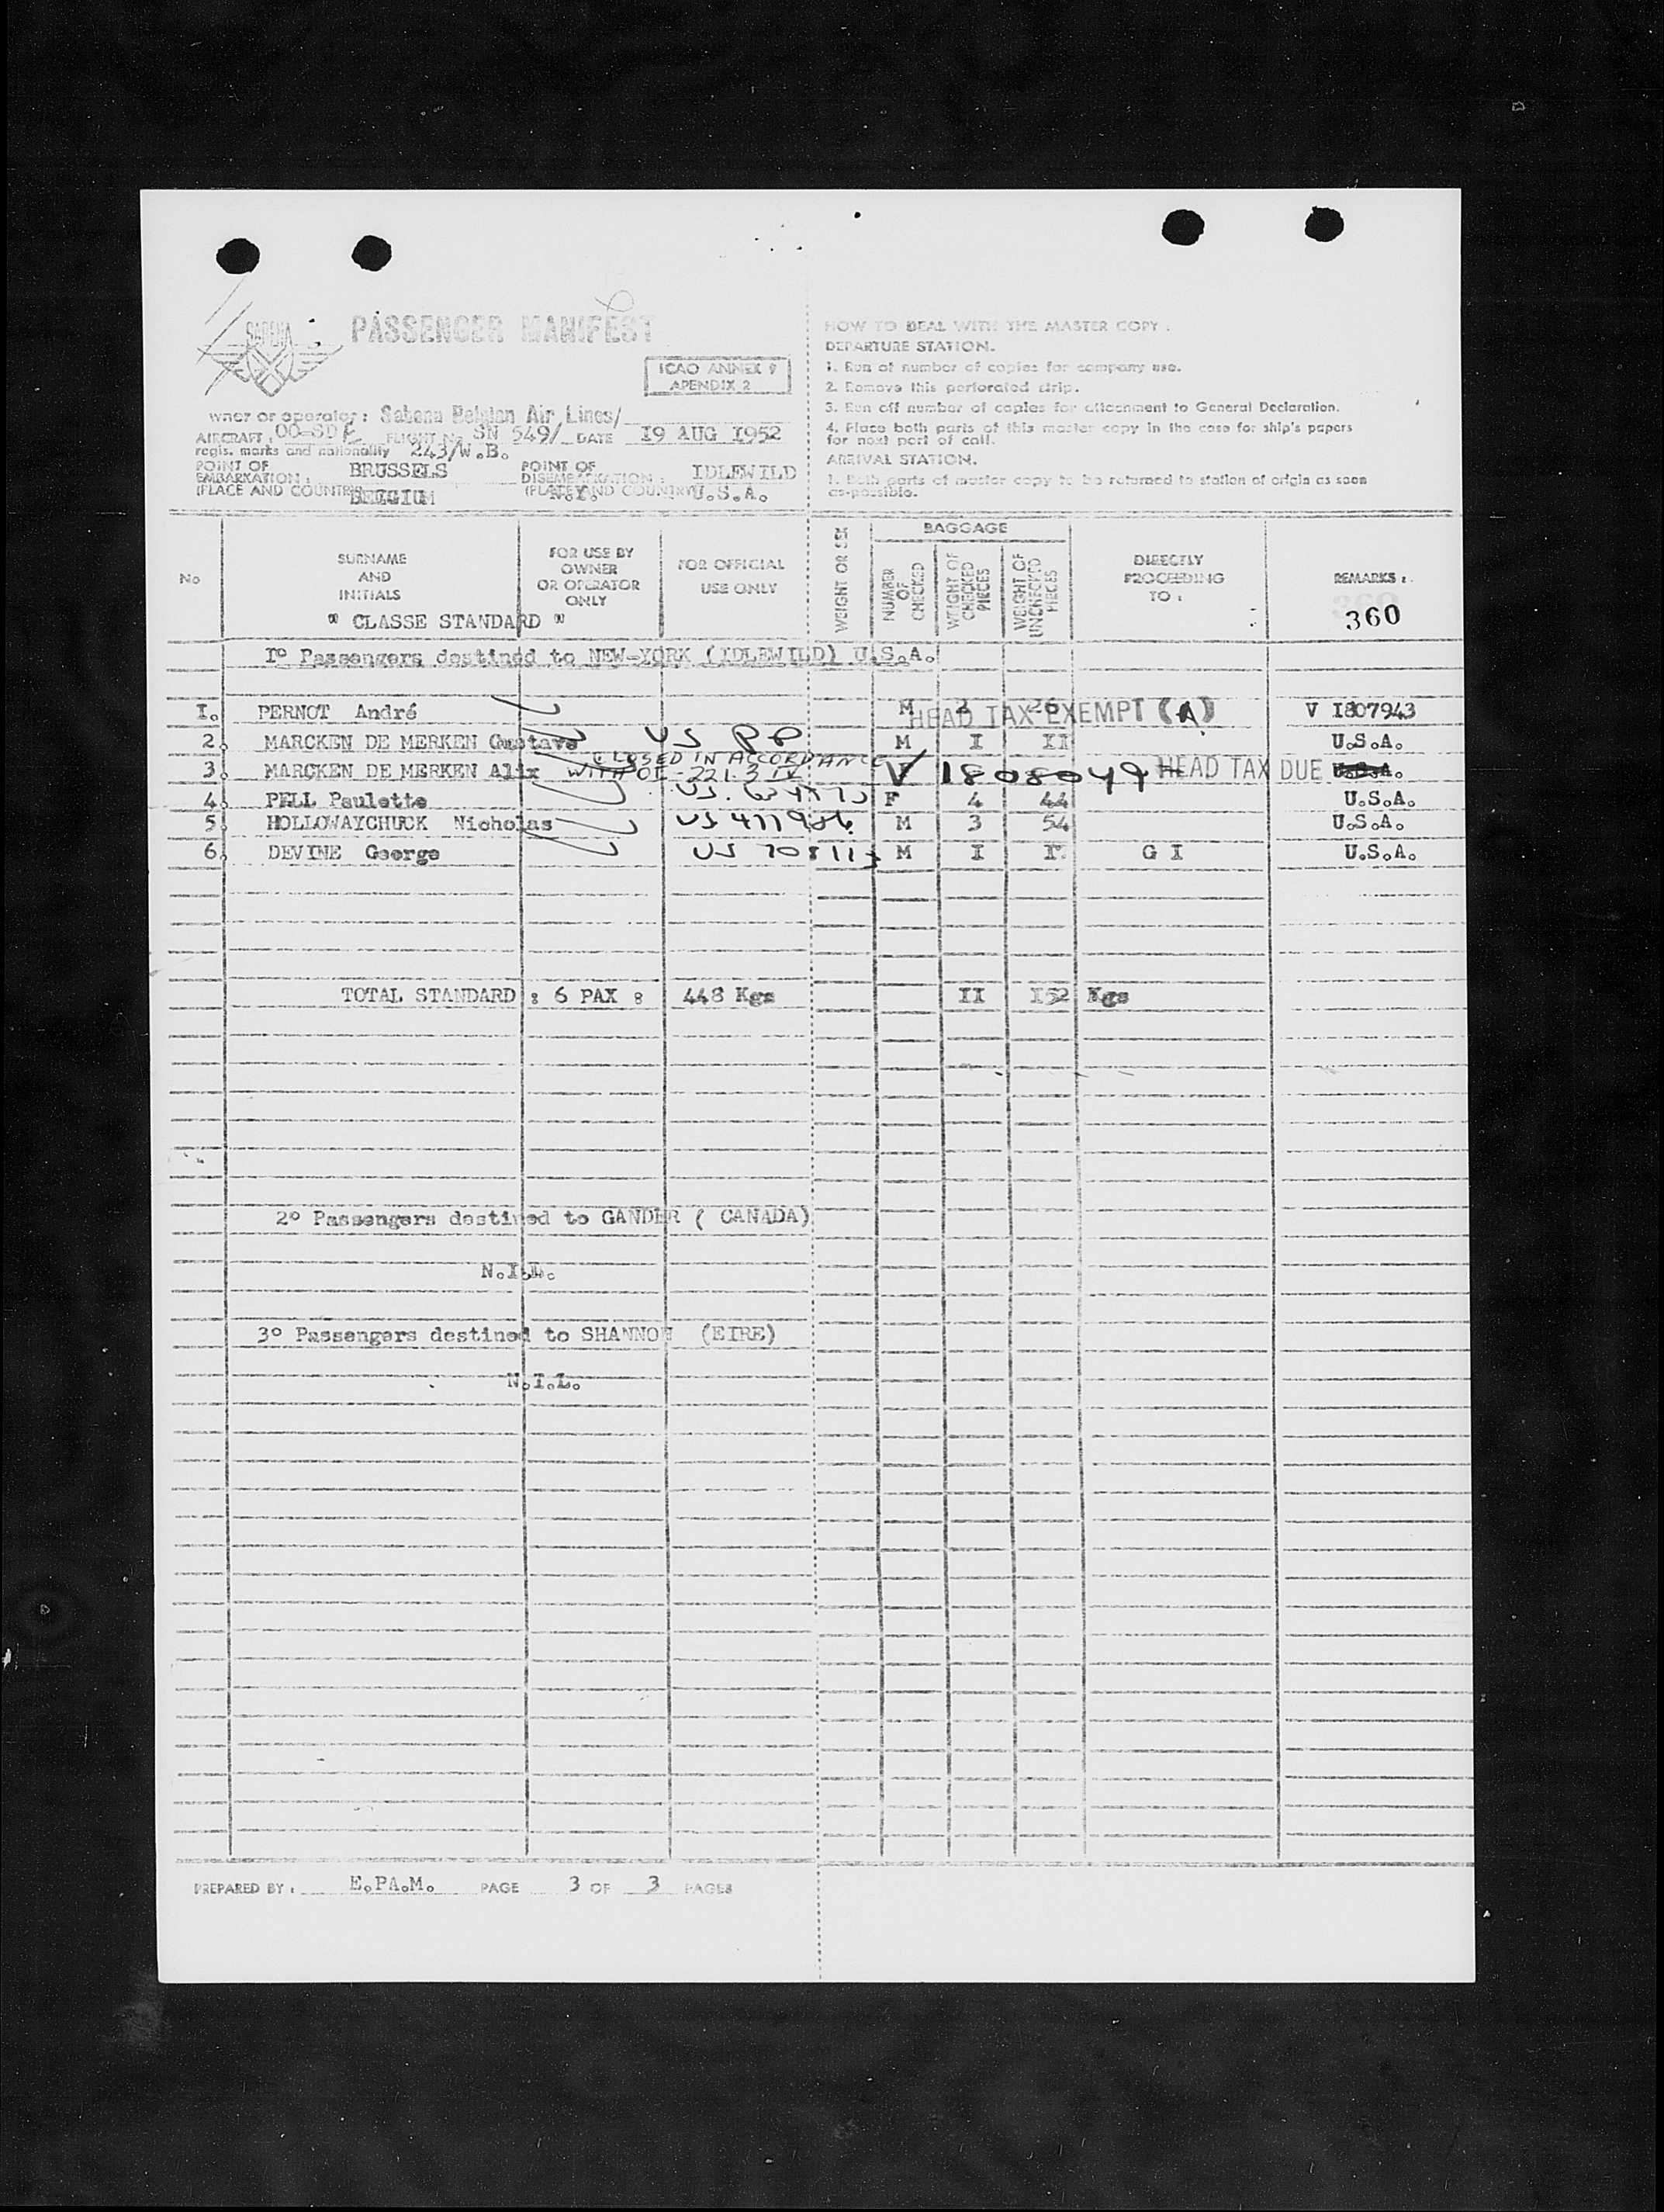 SABENA
PASSENGER MANIFEST
ICAO ANNEX 9
APENDIX 2
wner or operator : Sabena Belgian Air Lines/
AIRCRAFT : OO-SD FLIGHT No SN 549/ DATE 19 AUG 1952
regis. marks and nationality 243/W.B.
POINT OF EMBARKATION : BRUSSELS POINT OF DISEMBARKATION : IDLEWILD
(PLACE AND COUNTRY) BELGIUM (PLACE AND COUNTRY) N.Y. U.S.A.
HOW TO DEAL WITH THE MASTER COPY :
DEPARTURE STATION.
1. Run of number of copies for company use.
2. Remove this perforated strip.
3. Run off number of copies for attachment to General Declaration.
4. Place both parts of this master copy in the case for ship's papers
for next port of call.
ARRIVAL STATION.
1. Both parts of master copy to be returned to station of origin as soon
as possible.
No
SURNAME
AND
INITIALS
FOR USE BY
OWNER
OR OPERATOR
ONLY
FOR OFFICIAL
USE ONLY
WEIGHT OR SEX
BAGGAGE
NUMBER OF CHECKED
WEIGHT OF CHECKED PIECES
WEIGHT OF UNCHECKED PIECES
DIRECTLY
PROCEEDING
TO :
REMARKS :
360
" CLASSE STANDARD "
I° Passengers destined to NEW-YORK (IDLEWILD) U.S.A.
I. PERNOT André M 2 26 HEAD TAX EXEMPT (A) V I807943
2. MARCKEN DE MERKEN Gustave US PP M I II U.S.A.
CLOSED IN ACCORDANCE
3. MARCKEN DE MERKEN Alix WITH OI-221.3 V 1808049 HEAD TAX DUE U.S.A.
4. PELL Paulette US. F 4 44 U.S.A.
5. HOLLOWAYCHUCK Nicholas US 477986 M 3 54 U.S.A.
6. DEVINE George US M I G I U.S.A.
TOTAL STANDARD : 6 PAX : 448 Kgs II I52 Kgs
2° Passengers destined to GANDER ( CANADA)
N.I.L.
3° Passengers destined to SHANNON (EIRE)
N.I.L.
PREPARED BY : E.PA.M. PAGE 3 OF 3 PAGES